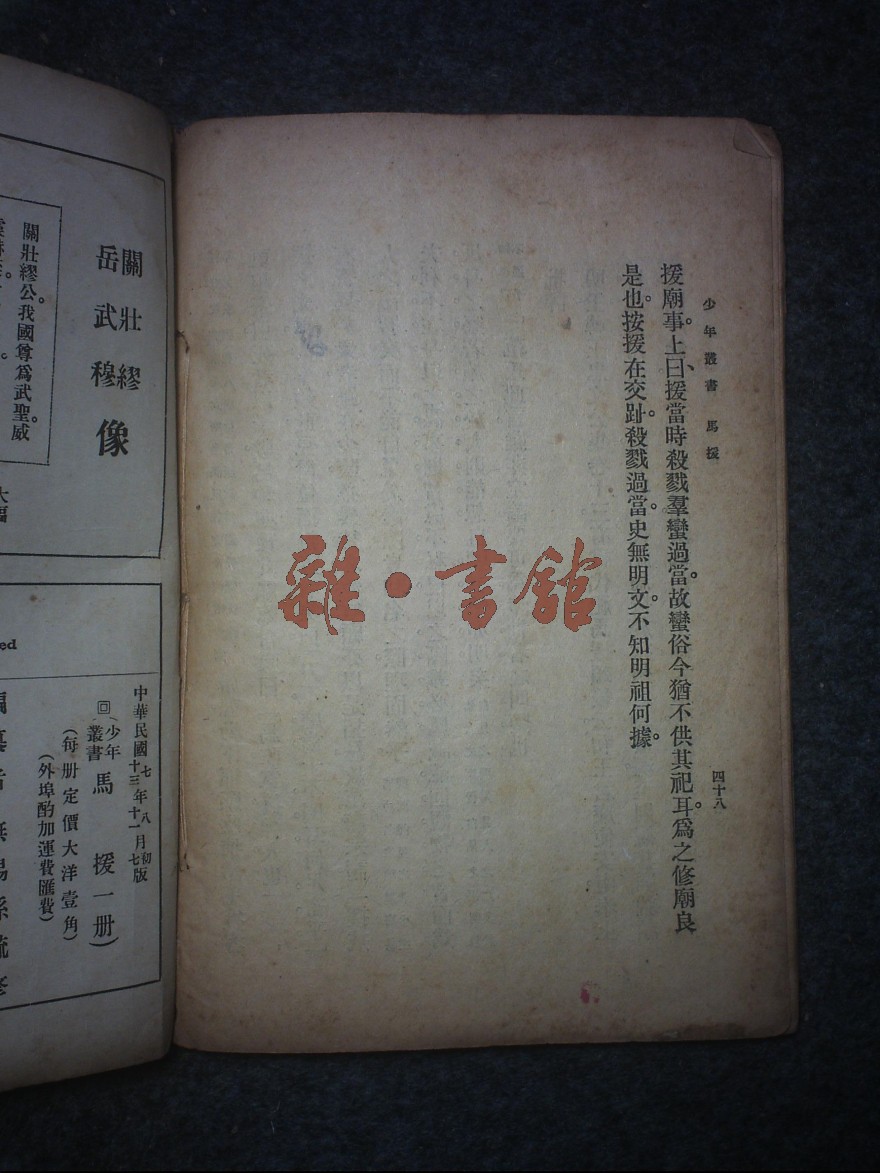 少年叢書 馬援
援廟事。上曰、援當時殺戮羣蠻過當。故蠻俗今猶不供其祀耳。爲之修廟良
是也。按援在交趾。殺戮過當。史無明文。不知明祖何據。
四十八
雜·書館
關壯繆
岳武穆
像
關壯繆公。我國尊爲武聖。威
大幅
ed
中華民國七年八月初版
十三年十一月七版
回(少年叢書 馬援一册)
(每册定價大洋壹角)
(外埠酌加運費匯費)